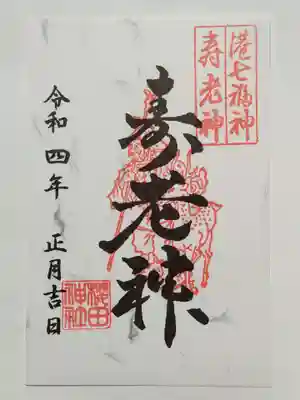 港七福神
寿老神
寿老神
令和四年 正月吉日
桜田
神社